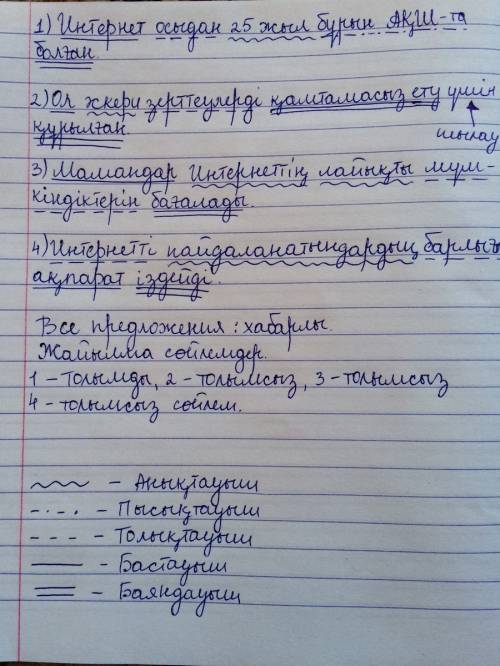 1) Интернет осыдан 25 жыл бұрын АҚШ-та
болған.
2) Ол әскери зерттеулерді қамтамасыз ету үшін
құрылған.
шылау
3) Мамандар Интернеттің лайықты мүм-
кіндіктерін бағалады.
4) Интернетті пайдаланатындардың барлығы
ақпарат іздейді.
Все предложения: хабарлы.
Жайылма сөйлемдер.
1 - Толымды, 2 - толымсыз, 3 - толымсыз
4 - толымсыз сөйлем.
- Анықтауыш
- Пысықтауыш
- Толықтауыш
- Бастауыш
- Баяндауыш